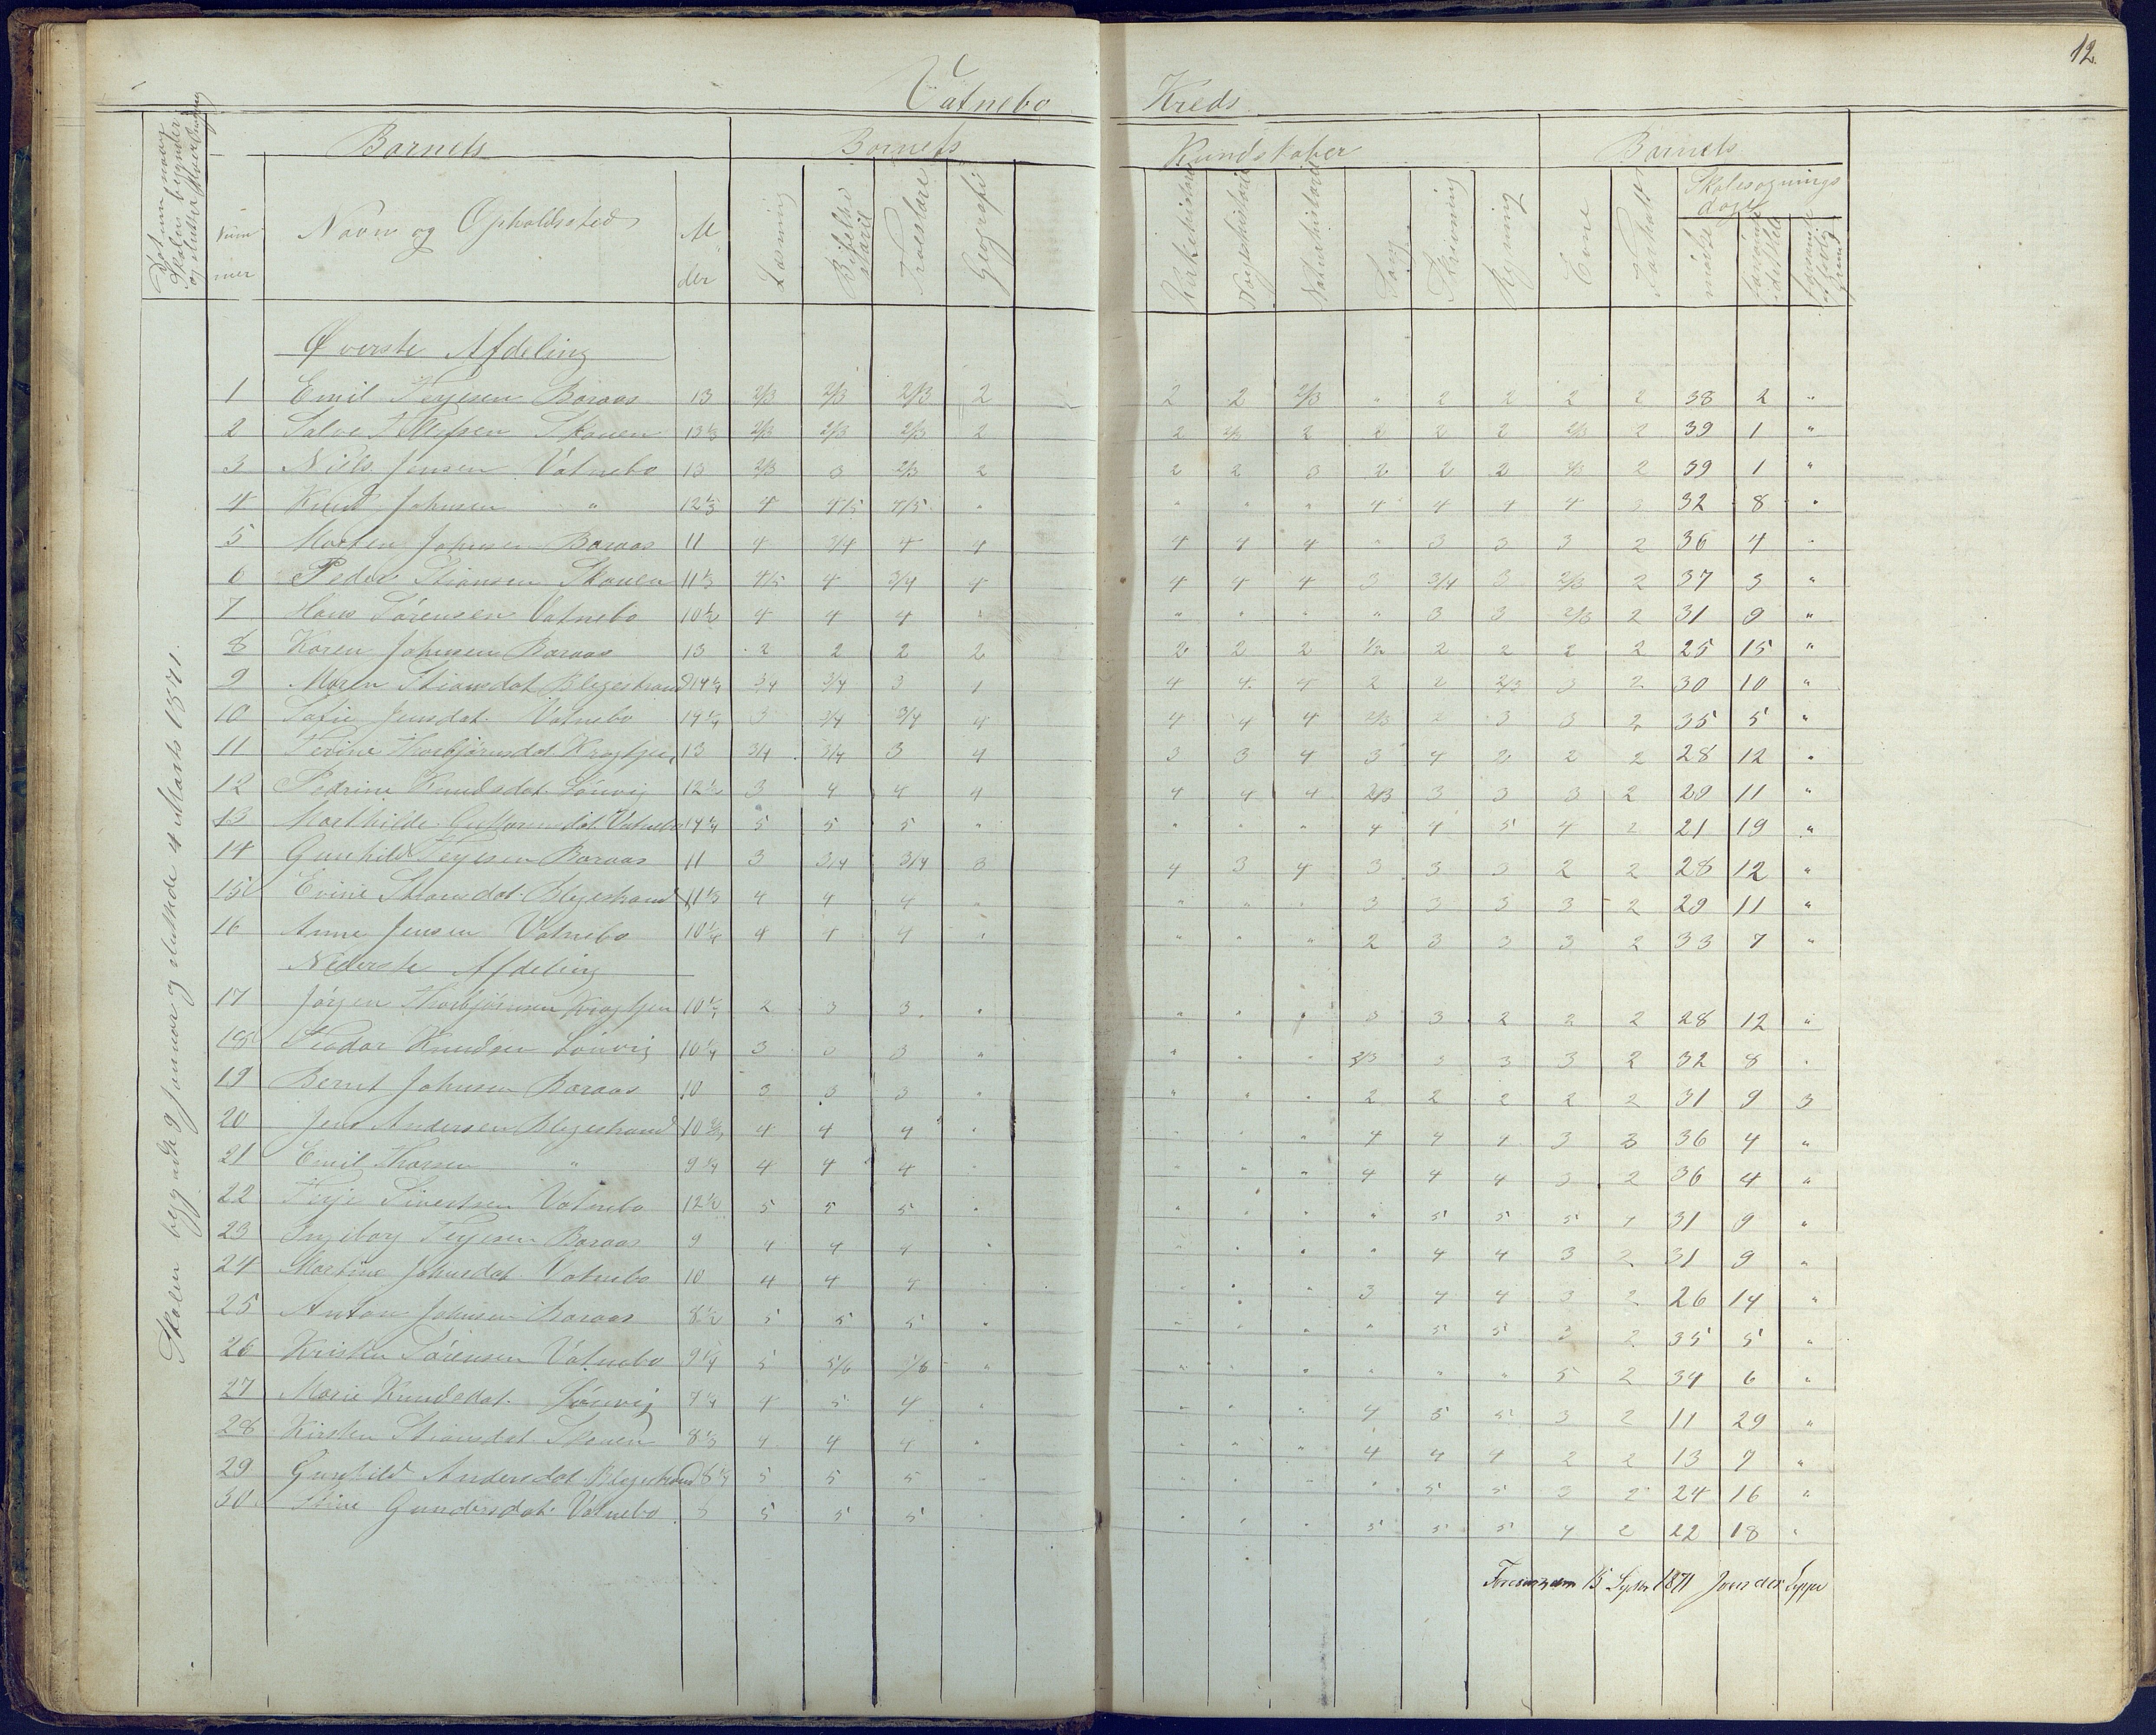 12.
Vatnebo Kreds.
Datum naar Skolen begynder og slutter hver Omgang
Barnets
Barnets
Kundskaber
Barnets
Num-mer
Navn og Opholdssted
Al-der
Læsning
Bibelhistorie
Troeslære
Geografi
Kirkehistorie
Norgeshistorie
Naturhistorie
Sang
Skrivning
Regning
Evne
Forhold
Skolesøgnings dage
mødte
forsømte i det Hele
forsømte af lovlig Grund
Skolen begyndte 9 Januar og sluttede 4 Marts 1871.
Øverste Afdeling
1 Emil Terjesen Baraas 13 2/3 2/3 2/3 2 2 2 2/3 " 2 2 2 2 38 2 "
2 Salve Skouen 13 1/3 2/3 2/3 2/3 2 2 2/3 2 2 2 2 2/3 2 39 1 "
3 Niels Jensen Vatnebo 13 2/3 3 2/3 2 2 2 3 2 2 2 2/3 2 39 1 "
4 Knud Johnsen " 12 1/3 4 4/5 4/5 " " " " 4 4 4 4 3 32 8 "
5 Morten Johnsen Baraas 11 4 3/4 4 4 4 4 4 " 3 3 3 2 36 4 "
6 Peder Stiansen Skouen 11 1/3 4/5 4 3/4 4 4 4 4 3 3/4 3 2/3 2 37 3 "
7 Hans Sørensen Vatnebo 10 1/2 4 4 4 " " " " " 3 3 2/3 2 31 9 "
8 Karen Johnsen Baraas 13 2 2 2 2 2 2 2 1/2 2 2 2 2 25 15 "
9 Maren Stiansdat Blegestrand 14 1/4 3/4 3/4 3 4 4 4 4 2 2 2/3 3 2 30 10 "
10 Sofie Jensdat. Vatnebo 14 1/4 3 3/4 3/4 4 4 4 4 2/3 2 3 3 2 35 5 "
11 Terine Thorbjørnsdat. 13 3/4 3/4 3 4 3 3 4 3 4 2 2 2 28 12 "
12 Pedrine Knudsdat. Lönvig 12 1/2 3 4 4 4 4 4 4 2/3 3 3 3 2 29 11 "
13 Mathilde Vatnebo 14 1/4 5 5 5 " " " " 4 4 5 4 2 21 19 "
14 Gunhild Terjesen Baraas 11 3 3/4 3/4 3 4 3 4 3 3 3 2 2 28 12 "
15 Evine Stiansdat. Blegestrand 11 1/3 4 4 4 " " " " 3 3 3 3 2 29 11 "
16 Anne Jensen Vatnebo 10 1/4 4 4 4 " " " " 2 3 3 3 2 33 7 "
Nederste Afdeling
17 Jørgen Thorbjørnsen 10 1/4 2 3 3 " " " " 3 3 2 2 2 28 12 "
18 Knudsen Lönvig 10 1/4 3 3 3 " " " " 2/3 3 3 3 2 32 8 "
19 Bernt Johnsen Baraas 10 3 3 3 " " " " 2 2 2 2 2 31 9 3
20 Jens Andersen Blegestrand 10 4 4 4 " " " " 4 4 4 3 3 36 4 "
21 Emil " 9 1/4 4 4 4 " " " " 4 4 4 3 2 36 4 "
22 Terje Sivertsen Vatnebo 12 1/2 5 5 5 " " " " " 5 5 5 4 31 9 "
23 Ingeborg Terjesen Baraas 9 4 4 4 " " " " " 4 4 3 2 31 9 "
24 Martine Johnsdat. Vatnebo 10 4 4 4 " " " " 3 4 4 3 2 26 14 "
25 Anton Johnsen Baraas 8 1/2 5 5 5 " " " " " 5 5 3 2 35 5 "
26 Kristen Sørensen Vatnebo 9 1/4 5 5/6 5/6 " " " " " " " 5 2 34 6 "
27 Marie Knudsdat. Lönvig 7 1/4 4 5 4 " " " " 4 5 5 3 2 11 29 "
28 Kirsten Stiansdat. Skouen 8 1/3 4 4 4 " " " " 4 4 4 2 2 13 7 "
29 Gunhild Andersdat. Blegestrand 8 1/4 5 5 5 " " " " " 5 5 3 2 24 16 "
30 Gundersdat. Vatnebo 5 5 5 " " " " 5 5 5 4 2 22 18 "
15 1871